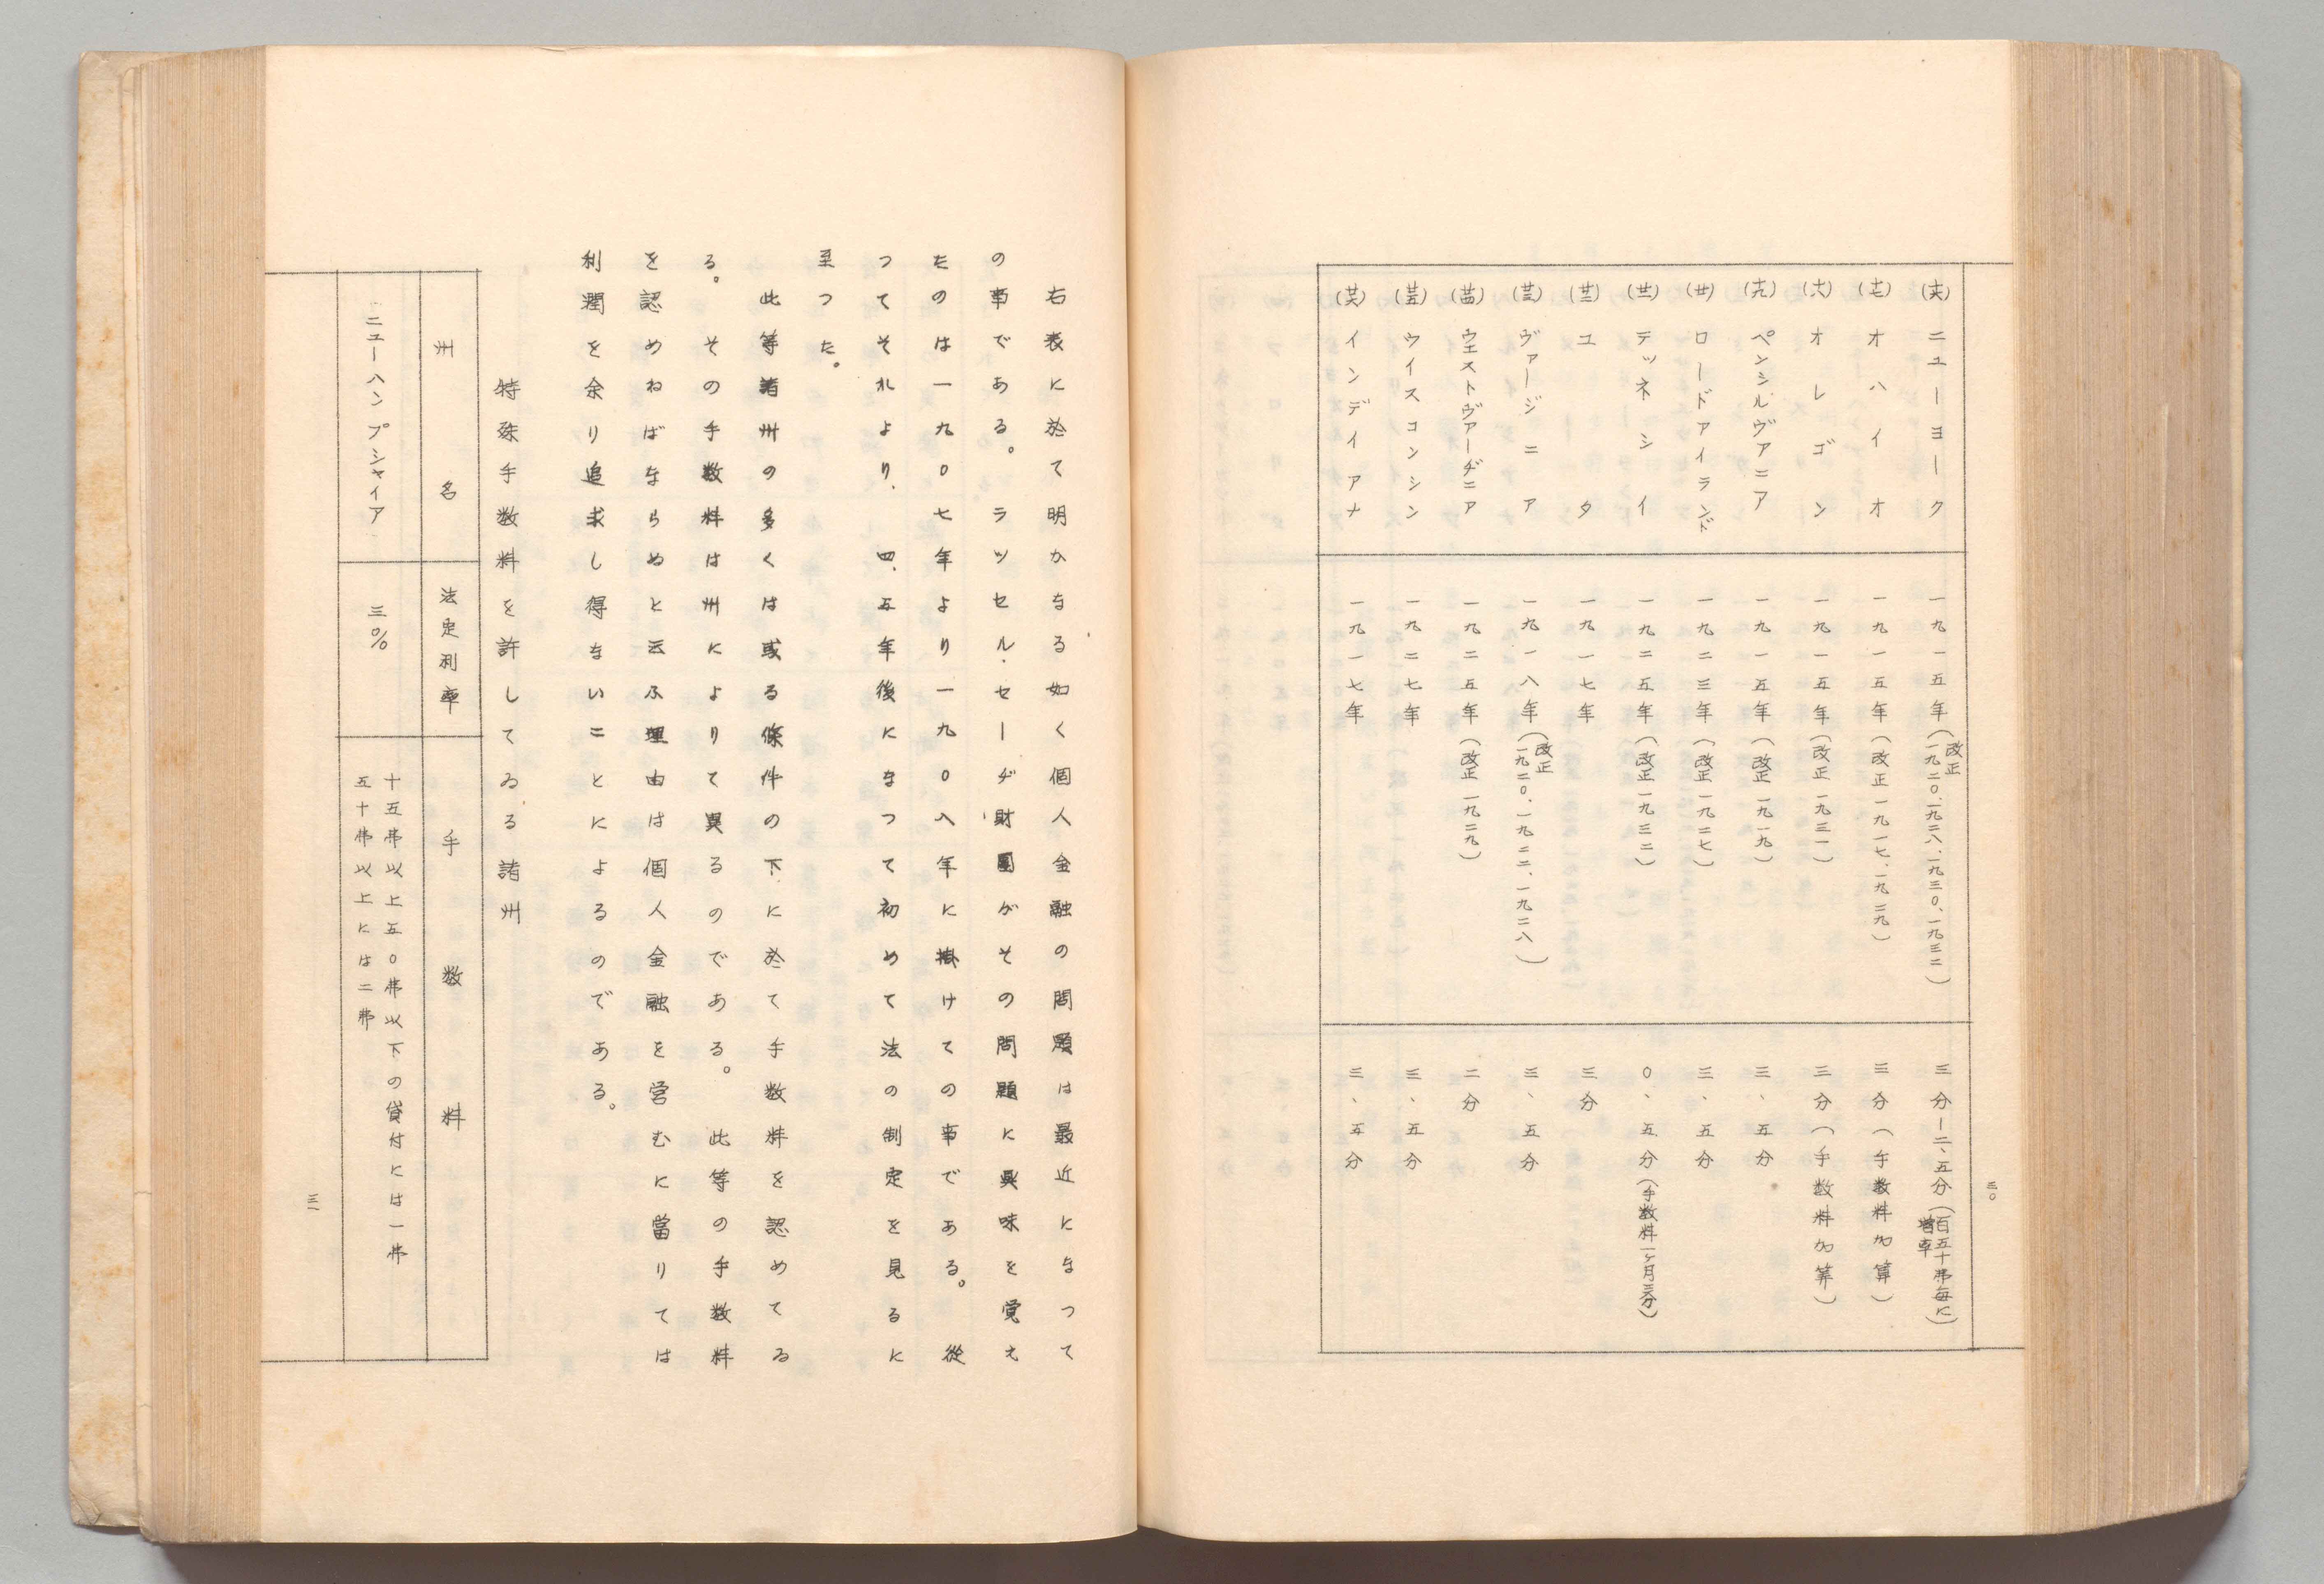 (十六) ニューヨーク 一九一五年(改正 一九二〇、一九二八、一九三〇、一九三二) 三分―二、五分(百五十弗毎に
(十七) オハイオ 一九一五年(改正 一九一七、一九二九) 三分(手数料加算)
(十八) オレゴン 一九一五年(改正 一九三一) 三分(手数料加算)
(十九) ペンシルヴァニア 一九一五年(改正 一九一九) 三、五分
(廿) ロードアイランド 一九二三年(改正 一九二七) 三、五分
(廿一) テッネシイ 一九二五年(改正 一九三二) 〇、五分(手数料一ケ月三分)
(廿二) ユータ 一九一七年 三分
(廿三) ヴァージニア 一九一八年(改正 一九二〇、一九二二、一九二八) 三、五分
(廿四) ウエストヴァーヂニア 一九二五年(改正 一九二九) 二分
(廿五) ウイスコンシン 一九二七年 三、五分
(廿六) インデイアナ 一九一七年 三、五分
三〇
右表に於て明かなる如く個人金融の問題は最近になつて
の事である。ラツセル・セーヂ財團がその問題に興味を覚え
たのは一九〇七年より一九〇八年に掛けての事である。從
つてそれより、四、五年後になつて初めて法の制定を見るに
至つた。
此等諸州の多くは或る條件の下に於て手数料を認めてゐ
る。その手数料は州によりて異るのである。此等の手数料
を認めねばならぬと云ふ理由は個人金融を営むに當りては
利潤を余り追求し得ないことによるのである。
特殊手数料を許してゐる諸州
州名 法定利率 手数料
ニューハンプシャイア 三〇% 十五弗以上五〇弗以下の貸付には一弗
五十弗以上には二弗
三一